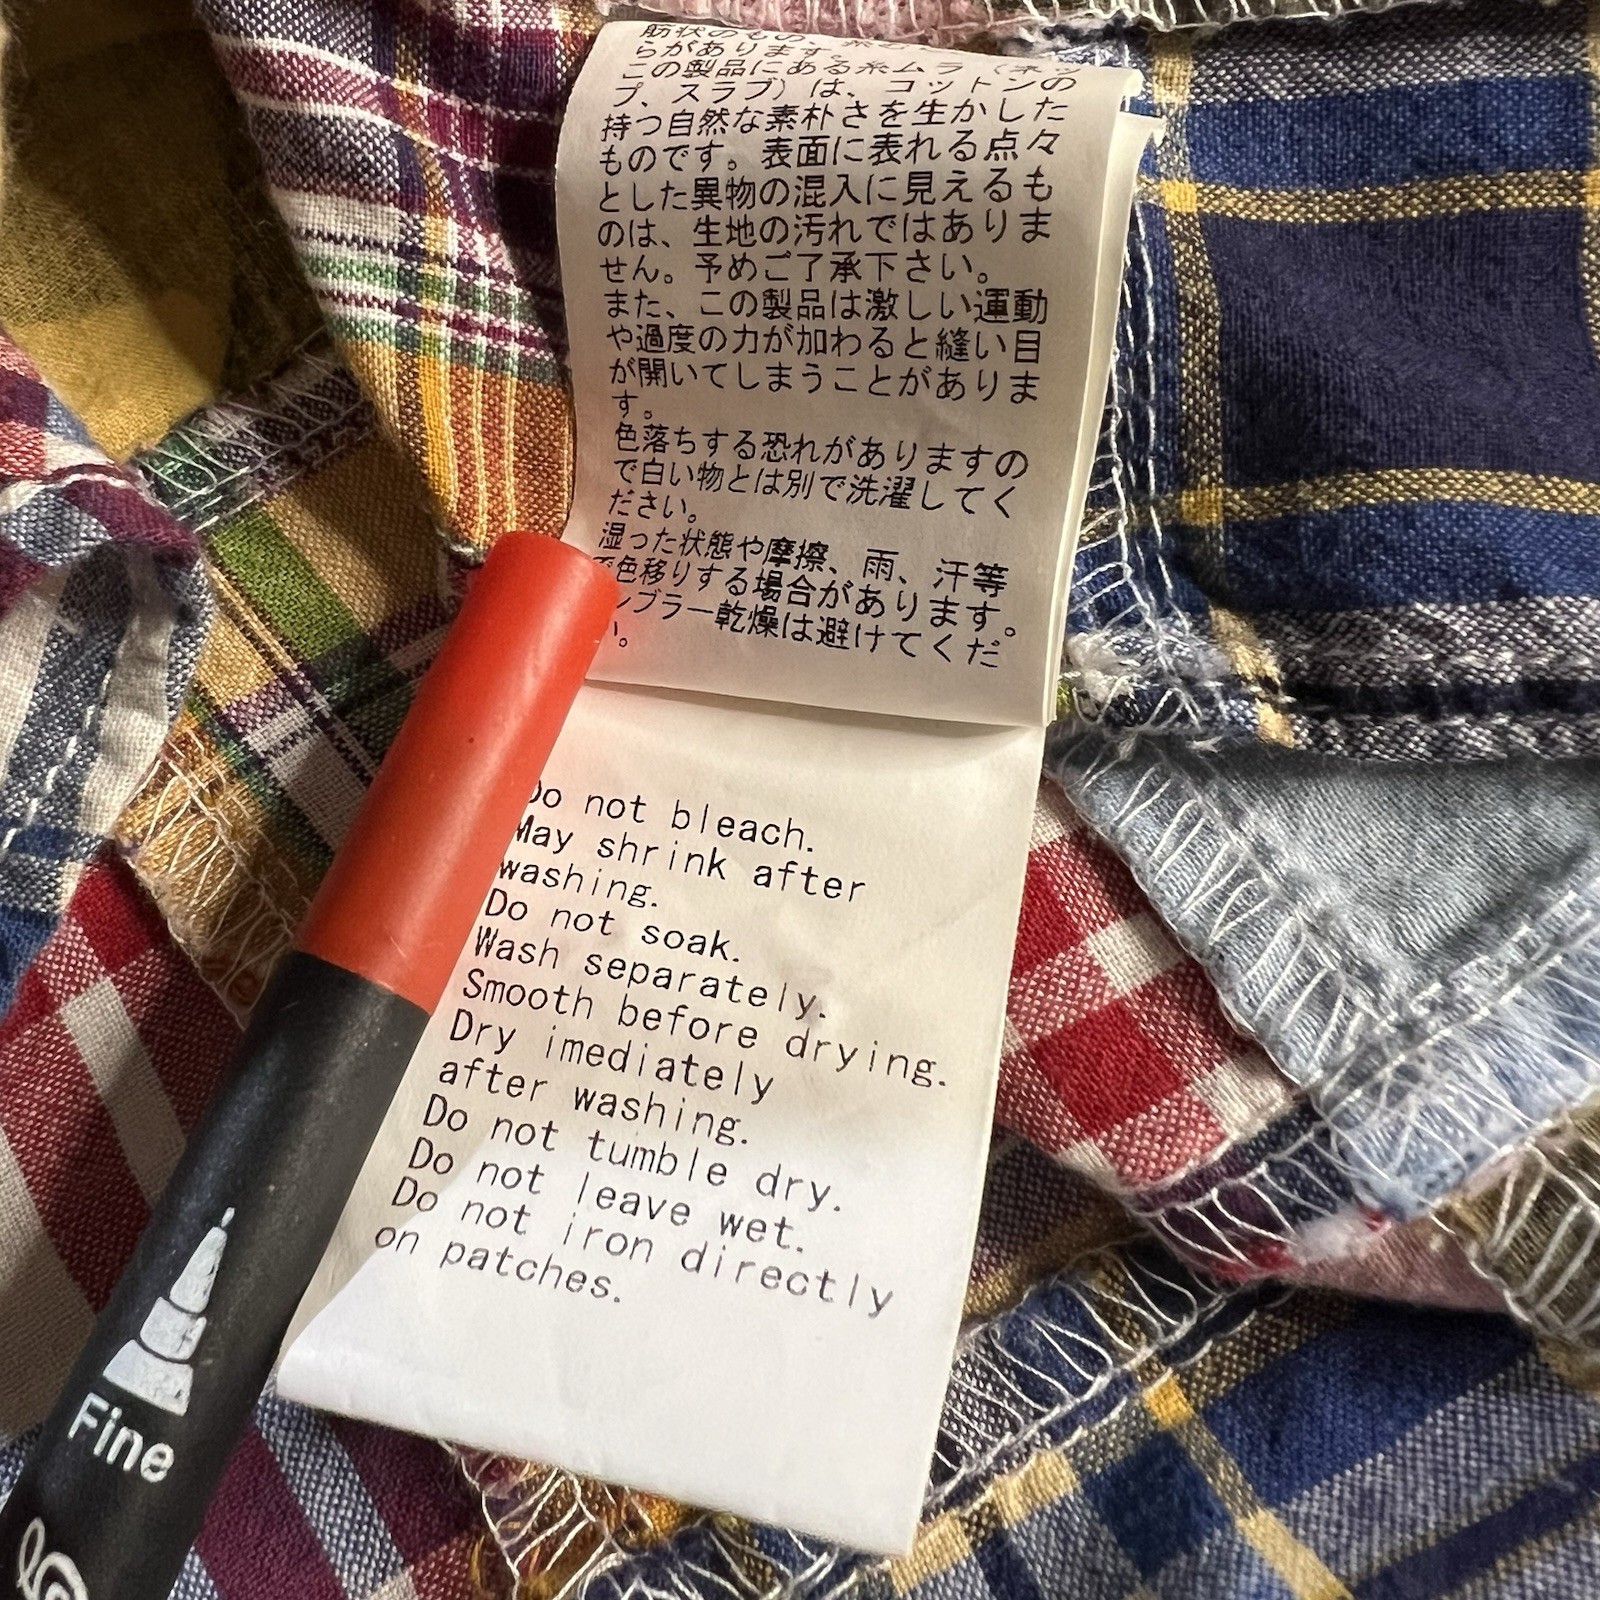 筋状のもの、
らがあります。
この製品にある糸ムラ（ネッ
プ、スラブ）は、コットンの
持つ自然な素朴さを生かした
ものです。表面に表れる点々
とした異物の混入に見えるも
のは、生地の汚れではありま
せん。予めご了承下さい。
また、この製品は激しい運動
や過度の力が加わると縫い目
が開いてしまうことがありま
す。
色落ちする恐れがありますの
で白い物とは別で洗濯してく
ださい。
湿った状態や摩擦、雨、汗等
で色移りする場合があります。
ンブラー乾燥は避けてくだ
い。
Do not bleach.
May shrink after
washing.
Do not soak.
Wash separately.
Smooth before drying.
Dry imediately
after washing.
Do not tumble dry.
Do not leave wet.
Do not iron directly
on patches.
Fine